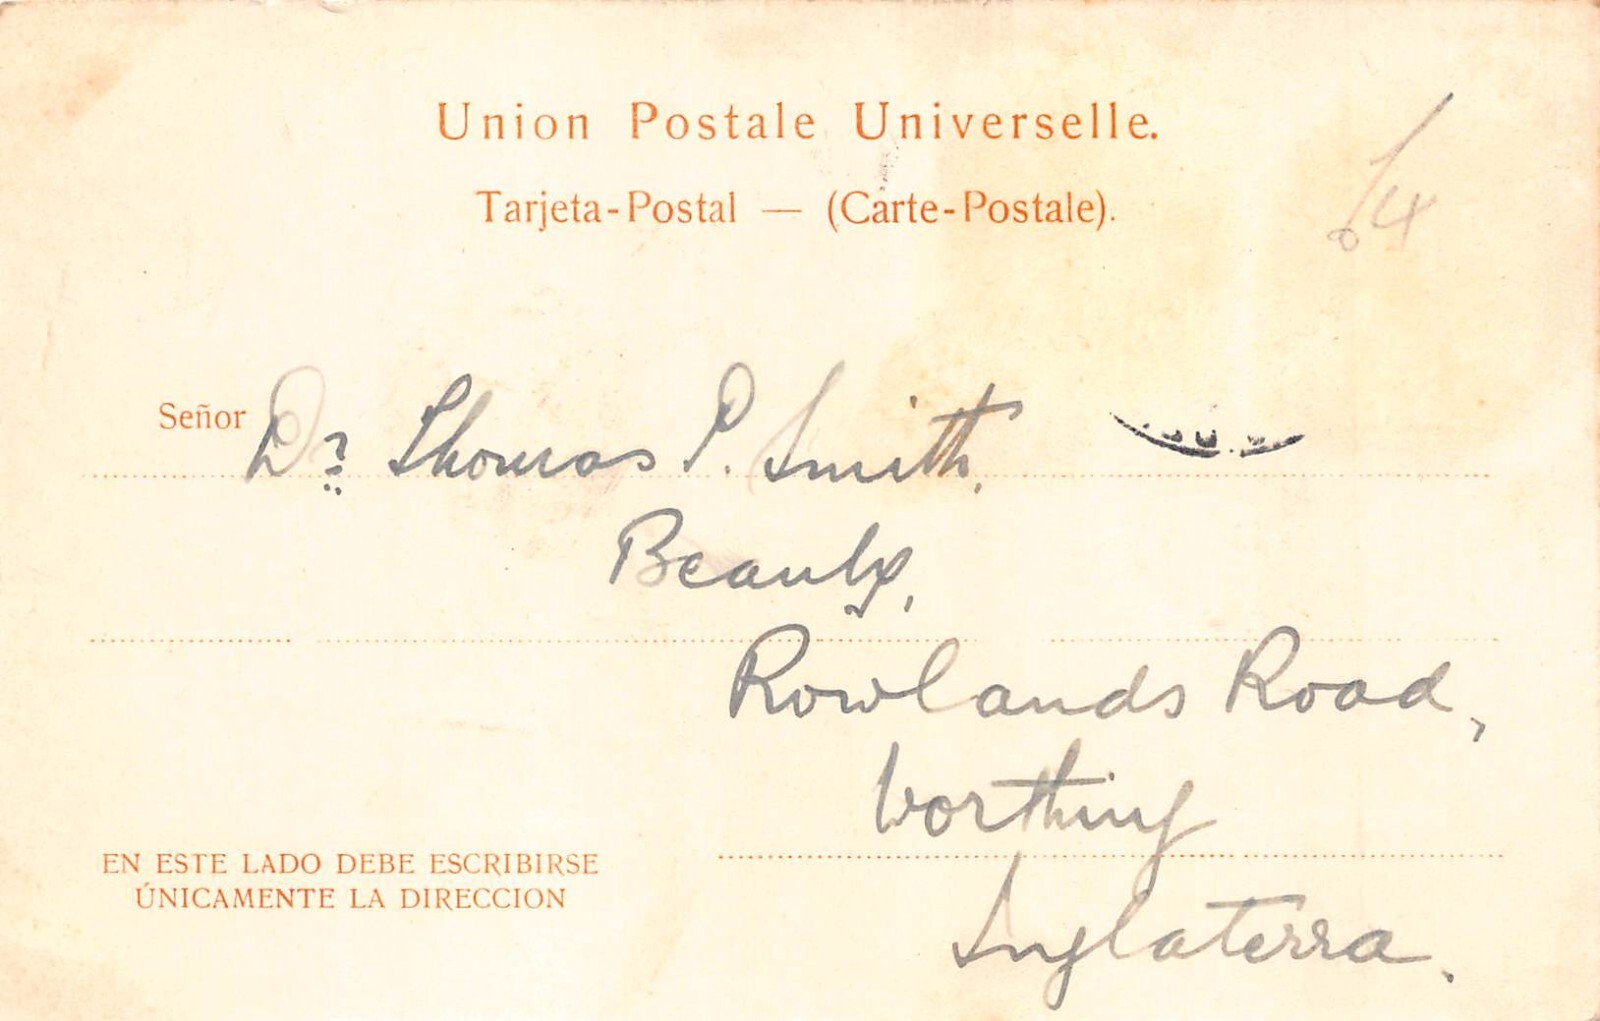 Union Postale Universelle.
Tarjeta-Postal — (Carte-Postale).
Señor Dr. Thomas P. Smith,
Rowlands Road,
Worthing
Inglaterra.
EN ESTE LADO DEBE ESCRIBIRSE
ÚNICAMENTE LA DIRECCION